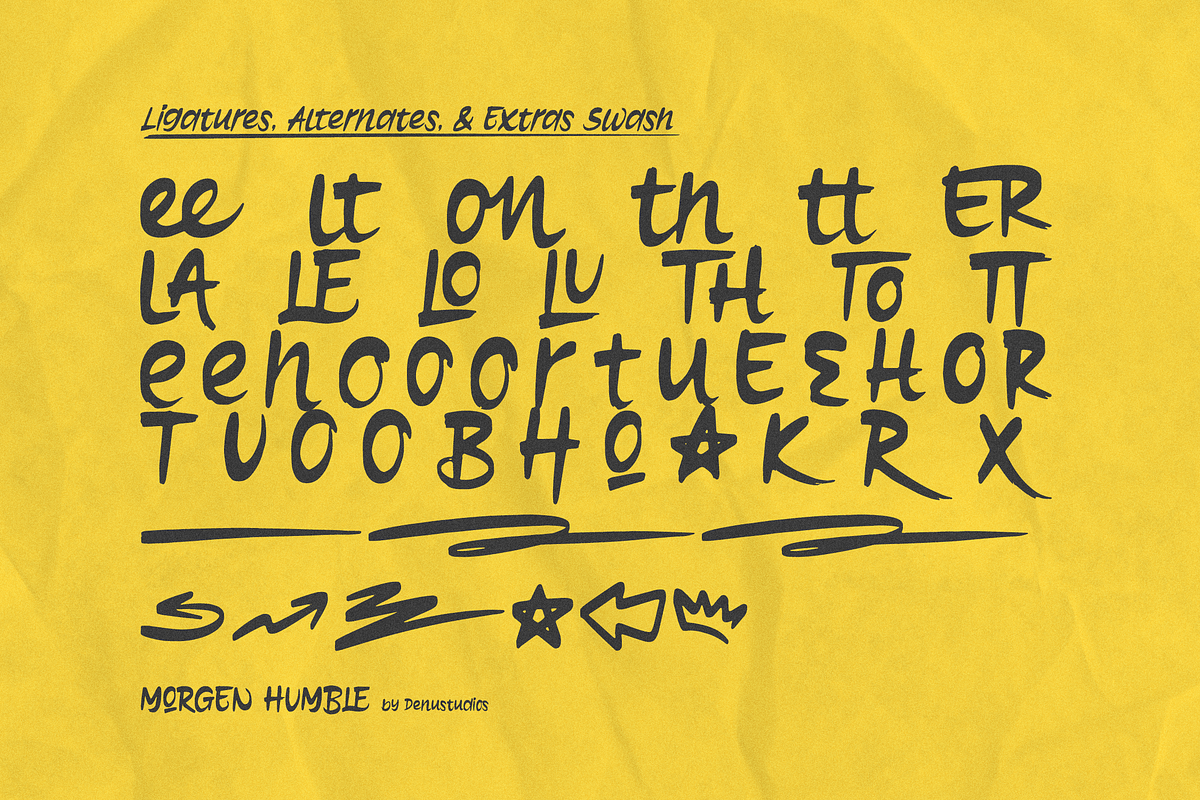 Ligatures, Alternates, & Extras Swash
ee lt on th tt ER
LA LE LO LU TH TO TT
e e n o o o r t u E E H O R
T U O O B H O A K R X
MORGEN HUMBLE by Denustudios